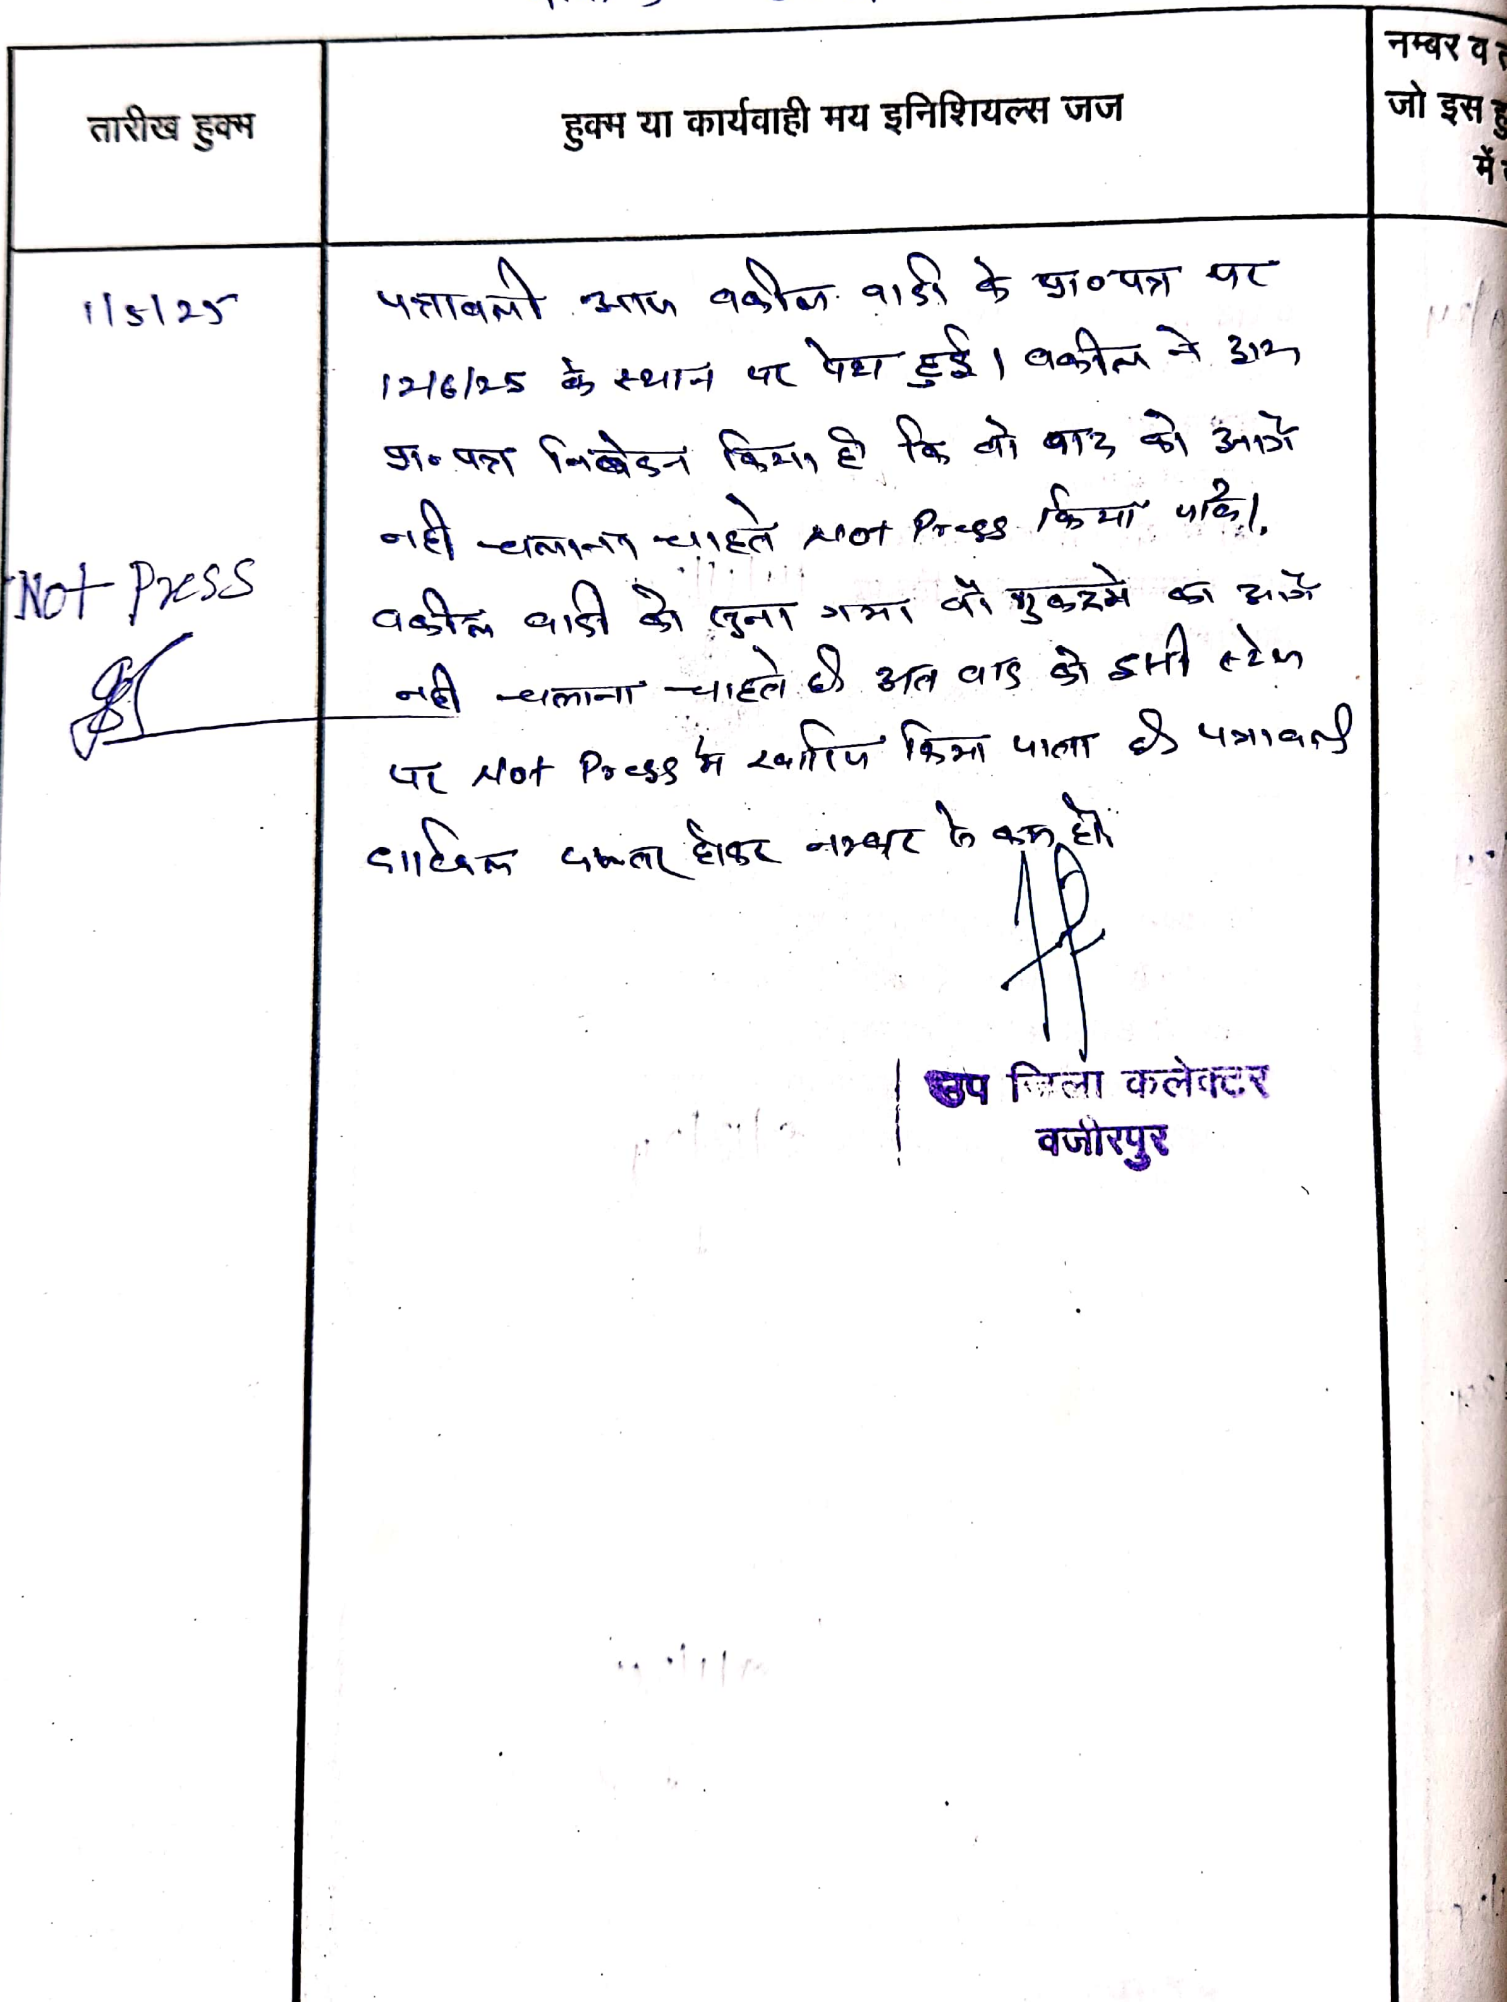 नम्बर व
तारीख हुक्म
हुक्म या कार्यवाही मय इनिशियल्स जज
जो इस
में
1/5/25
पत्रावली आज वकील वादी के प्रा०पत्र पर
12/6/25 के स्थान पर पेश हुई। वकील ने
प्रा०पत्र निवेदन किया है कि वो वाद को आगे
नही चलाना चाहते Not Press किया जावे।
Not Press
वकील वादी को सुना गया वो मुकदमे को आगे
नही चलाना चाहते है अत वाद को इसी स्टेज
पर Not Press में खारिज किया जाता है पत्रावली
दाखिल दफ्तर होकर नम्बर से कम हो।
उप जिला कलेक्टर
वजीरपुर